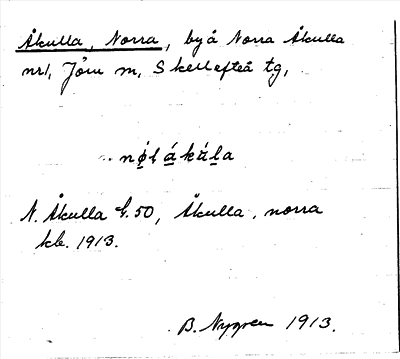 Åkulla, Norra, byå Norra Åkulla
nr1, Jörn m, Skellefteå tg,
nǫ́l ákúla
N. Åkulla G.50, Åkulla, norra
kb. 1913.
B. Nygren 1913.